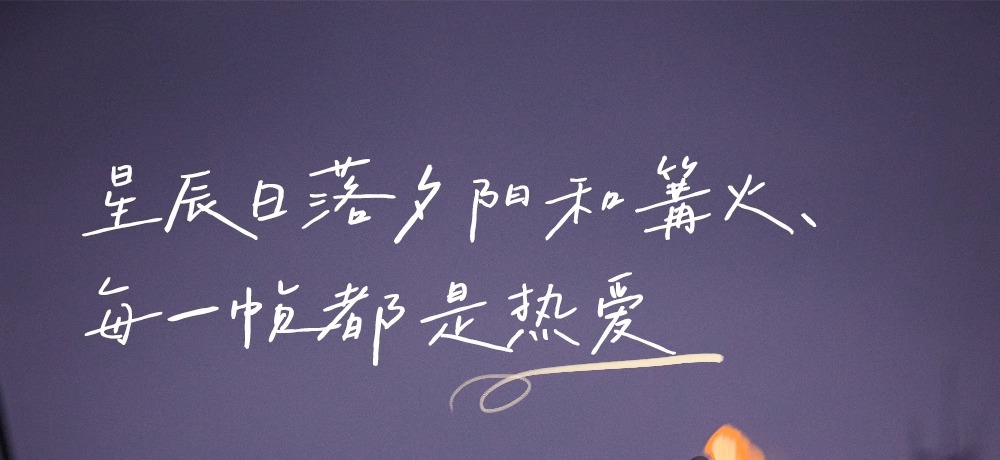 星辰日落夕阳和篝火、
每一帧都是热爱